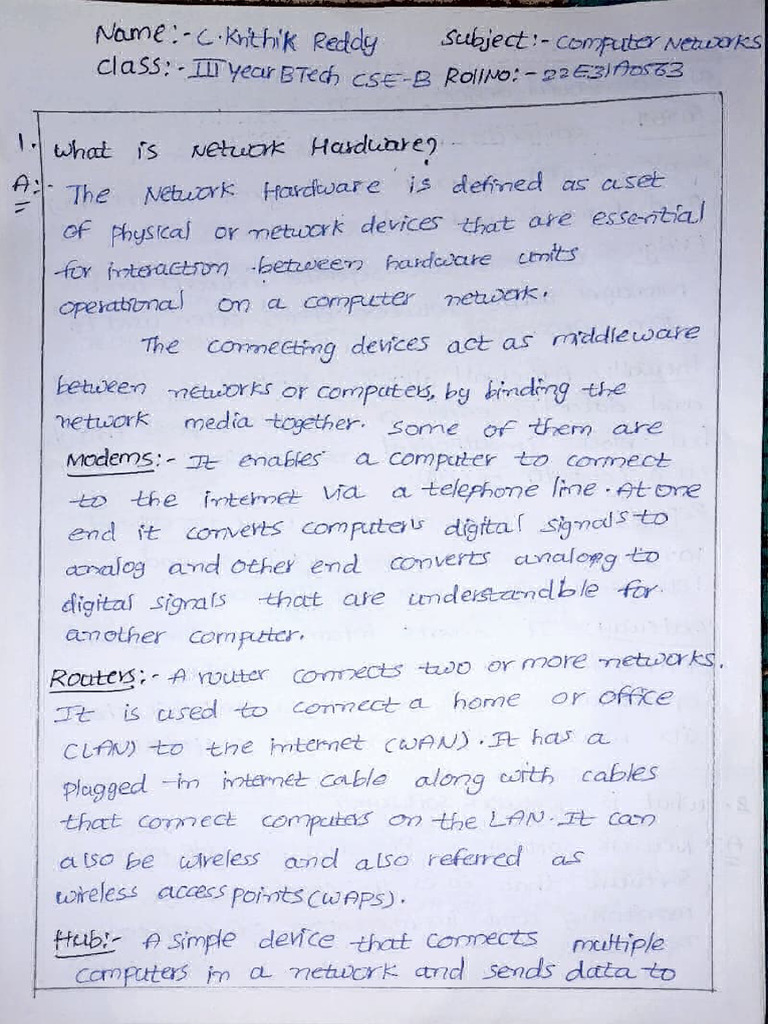 Name:- C. Krithik Reddy Subject:- Computer Networks
Class:- III year BTech CSE-B Roll No:- 22E31A0563
1. What is Network Hardware?
A:- The Network Hardware is defined as a set
of physical or network devices that are essential
for interaction between hardware units
operational on a computer network.
The connecting devices act as middleware
between networks or computers, by binding the
network media together. Some of them are
Modems:- It enables a computer to connect
to the internet via a telephone line. At one
end it converts computer's digital signals to
analog and other end converts analog to
digital signals that are understandble for
another computer.
Routers:- A router connects two or more networks.
It is used to connect a home or office
(LAN) to the internet (WAN). It has a
plagged-in internet cable along with cables
that connect computers on the LAN. It can
also be wireless and also referred as
wireless access points (WAPS).
Hub:- A simple device that connects multiple
computers in a network and sends data to